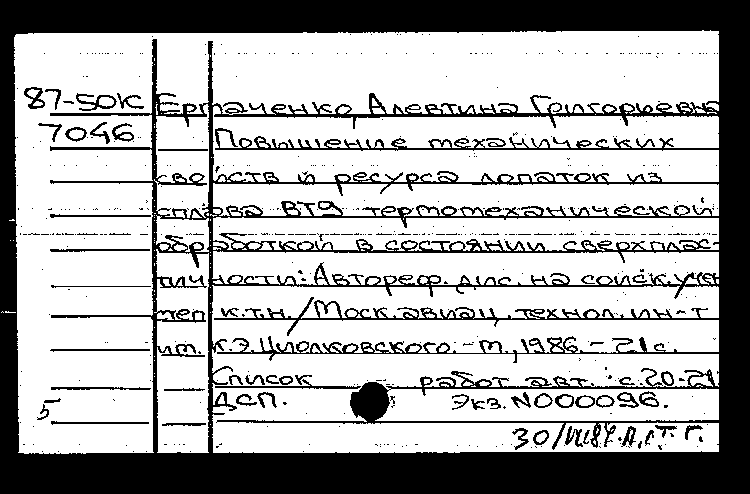 87-50К Ермаченко, Алевтина Григорьевна
7046 Повышение механических
свойств и ресурса лопаток из
сплава ВТ9 термомеханической
обработкой в состоянии сверхплас-
тичности: Автореф. дис. на соиск. учен
степ к.т.н. / Моск. авиац. технол. ин-т
им. К.Э. Циолковского. - М., 1986. - 21 с.
Список работ авт.: с. 20-21
5 ДСП. Экз. N000096.